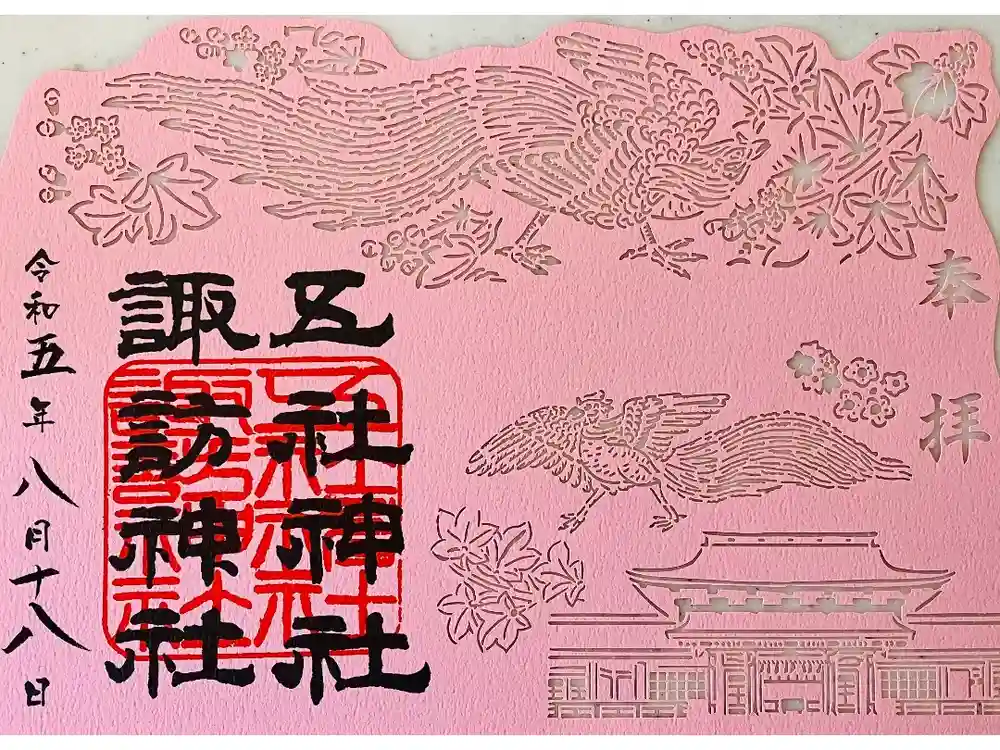 奉拝
五社神社
諏訪神社
令和五年八月十八日